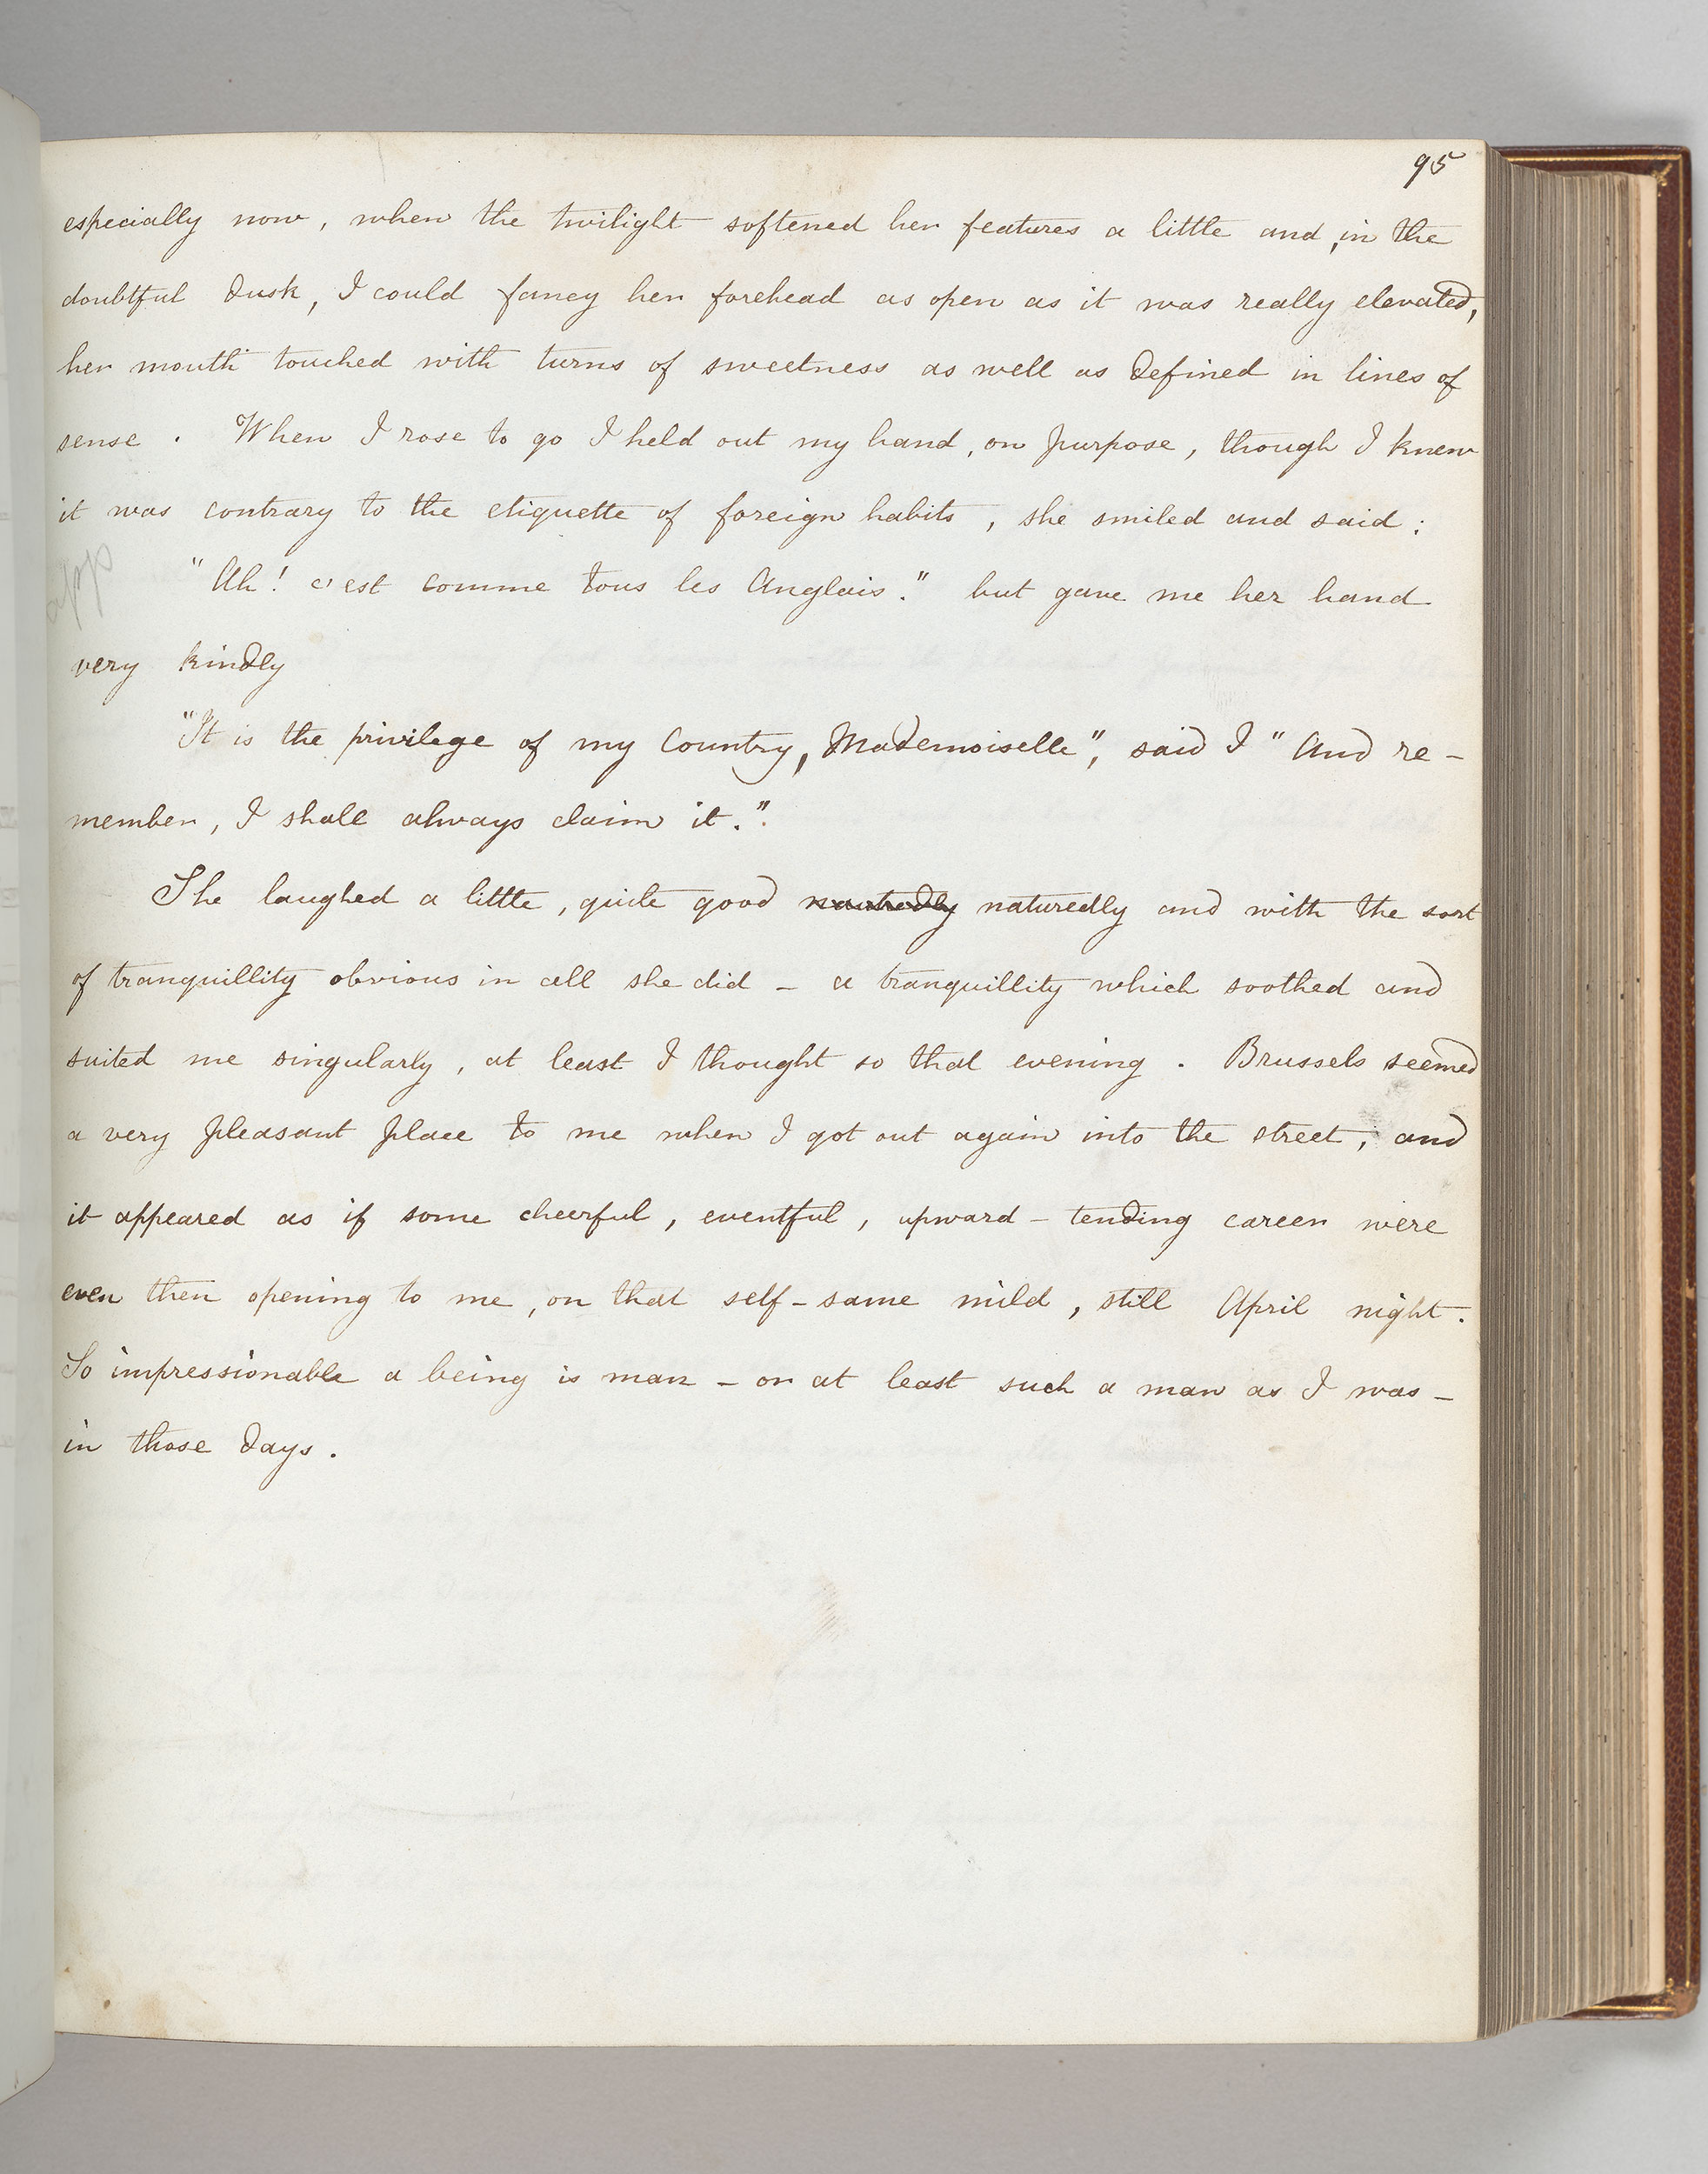 95
especially now, when the twilight softened her features a little and, in the
doubtful dusk, I could fancy her forehead as open as it was really elevated,
her mouth touched with turns of sweetness as well as defined in lines of
sense. When I rose to go I held out my hand, on purpose, though I knew
it was contrary to the etiquette of foreign habits, she smiled and said:
"Ah! c'est comme tous les Anglais." but gave me her hand
very kindly
"It is the privilege of my Country, Mademoiselle", said I "And re-
member, I shall always claim it."
She laughed a little, quite good naturedly and with the sort
of tranquillity obvious in all she did - a tranquillity which soothed and
suited me singularly, at least I thought so that evening. Brussels seemed
a very pleasant place to me when I got out again into the street, and
it appeared as if some cheerful, eventful, upward-tending career were
even then opening to me, on that self-same mild, still April night.
So impressionable a being is man - or at least such a man as I was -
in those days.